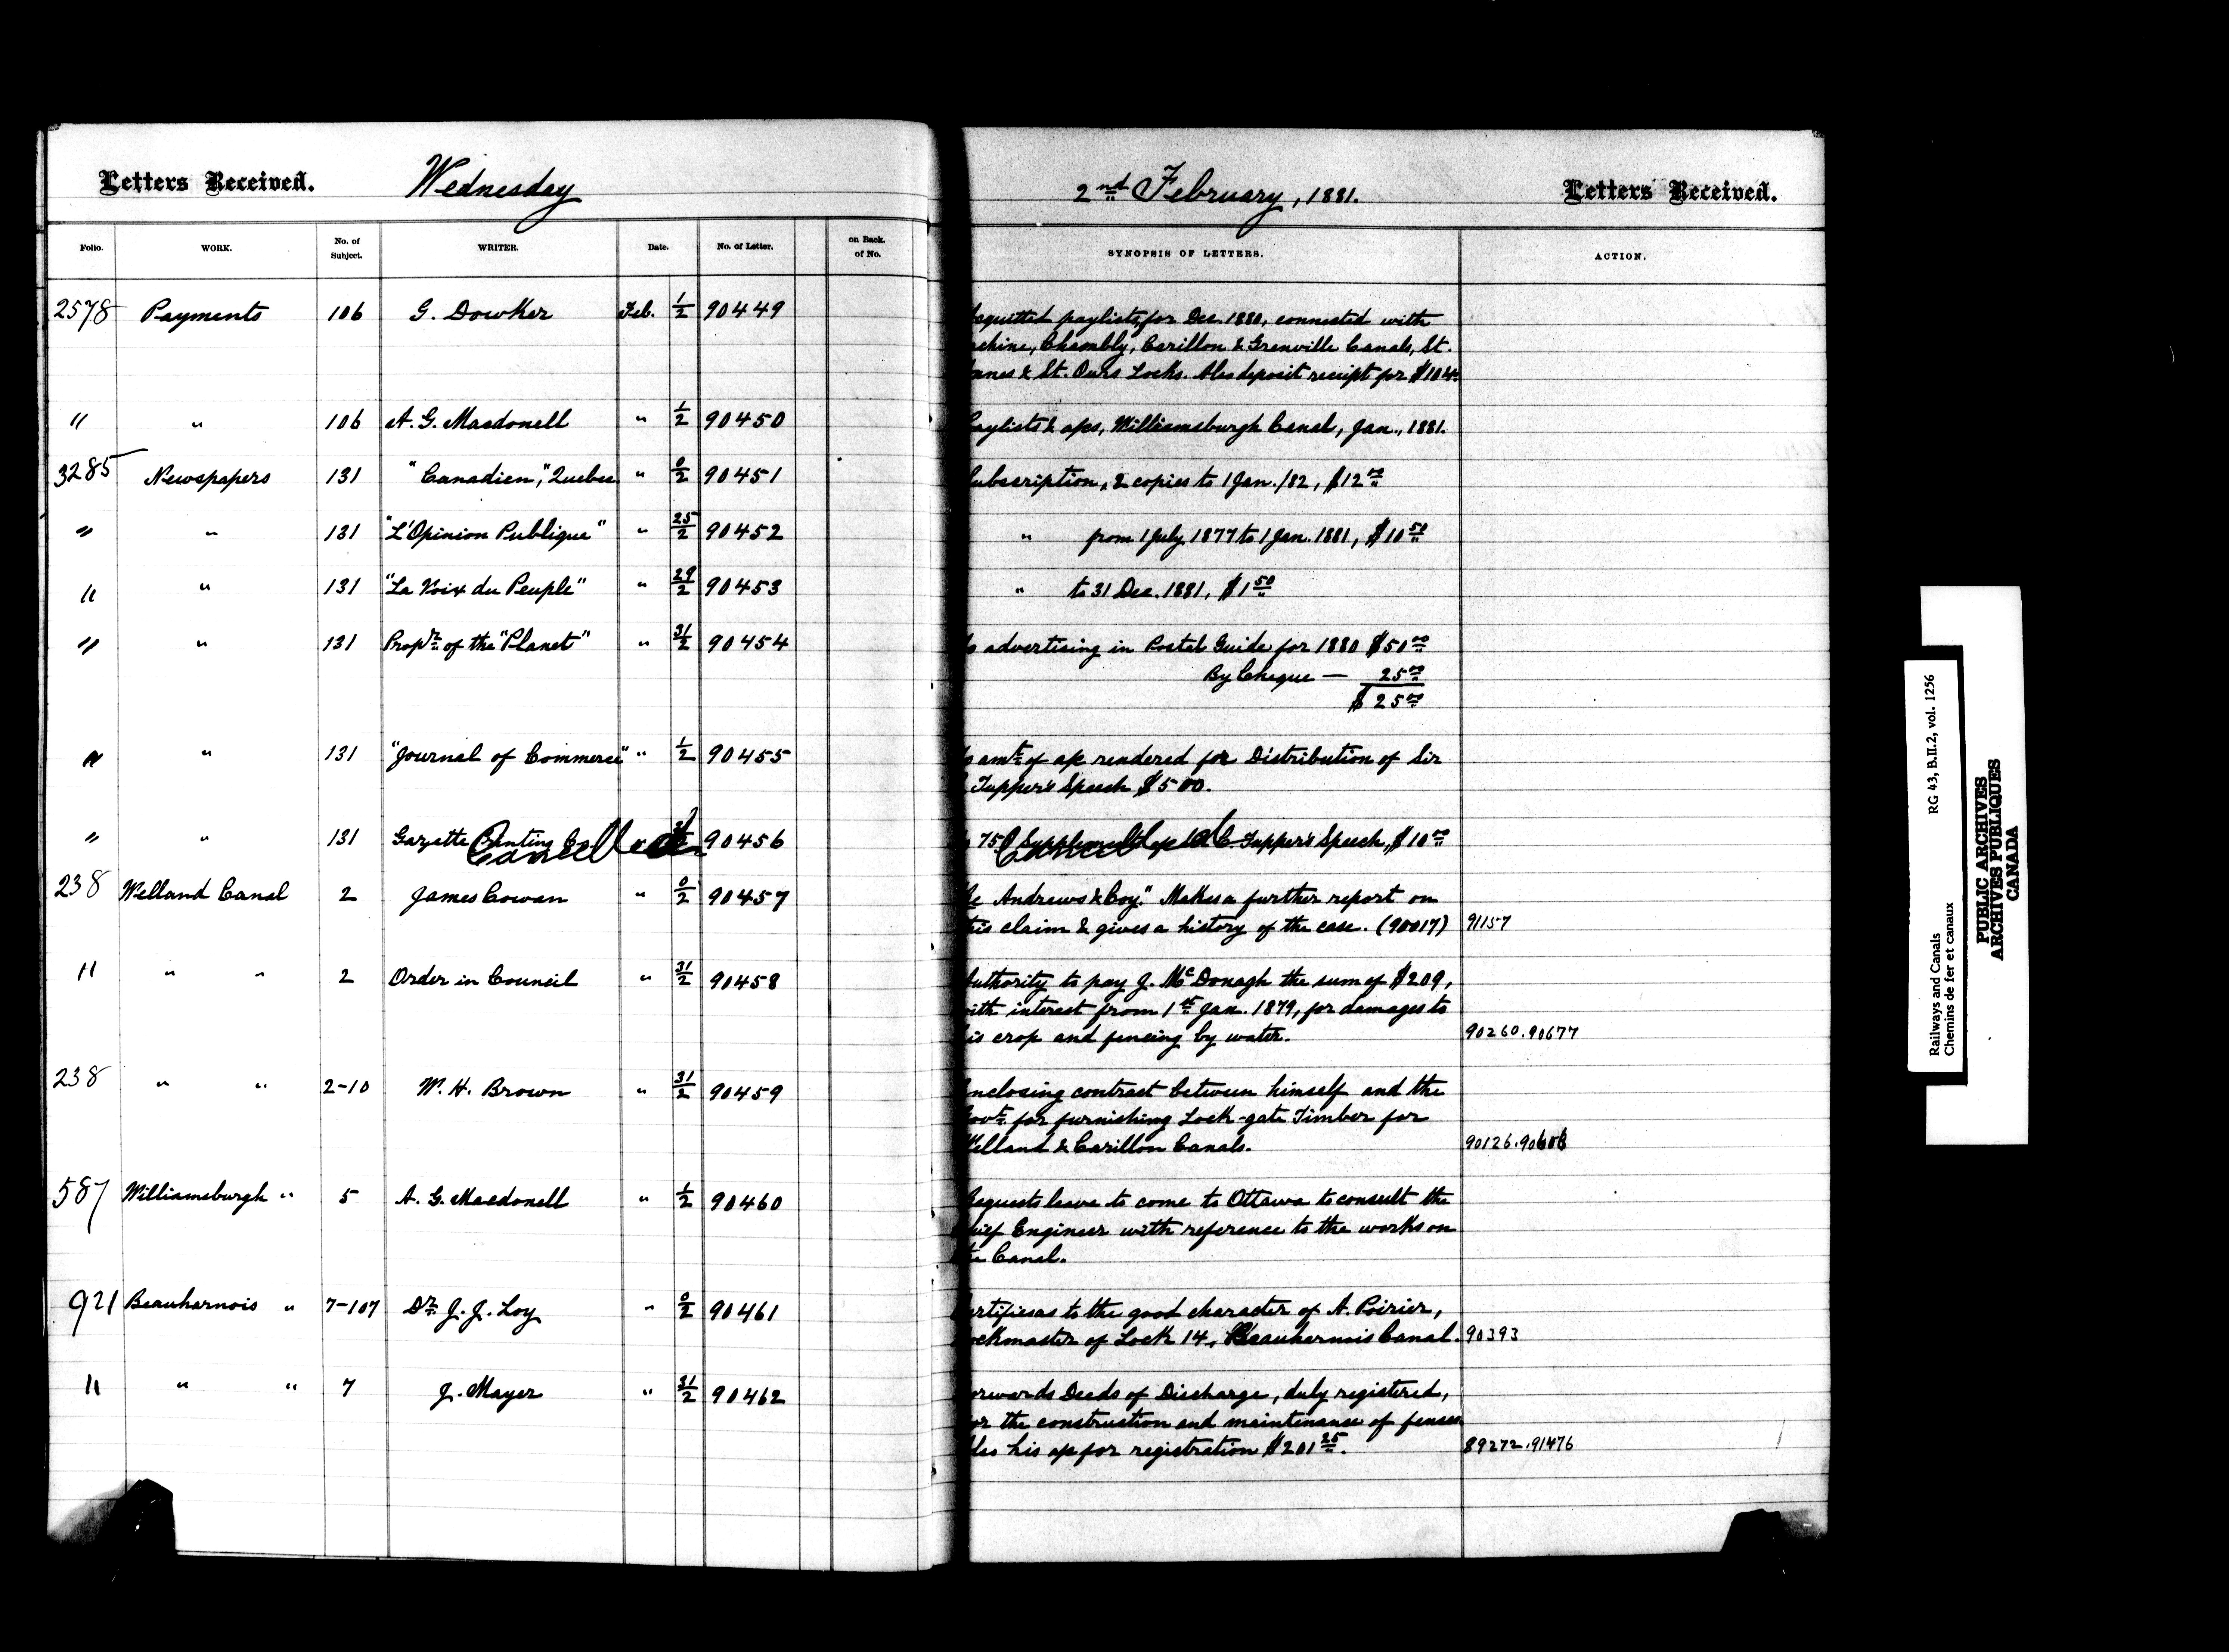 Letters Received. Wednesday
2nd February, 1881. Letters Received.
Folio. WORK. No. of Subject. WRITER. Date. No. of Letter. on Back. of No.
SYNOPSIS OF LETTERS. ACTION.
2578 Payments 106 G. Dowker Feb. 1/2 90449
acquitted paylists, for Dec. 1880, connected with
chine, Chambly, Carillon & Grenville Canals, St.
Annes & St. Ours Locks. Also deposit receipt for $104.
" " 106 A. G. Macdonell " 1/2 90450
Paylists & a/cs, Williamsburgh Canal, Jan., 1881.
3285 Newspapers 131 "Canadien", Quebec " 0/2 90451
Subscription, 2 copies to 1 Jan. /82, $12 00
" " 131 "L'Opinion Publique" " 25/2 90452
" from 1 July 1877 to 1 Jan. 1881, $10 50
" " 131 "La Voix du Peuple" " 29/2 90453
" to 31 Dec. 1881, $1 50
" " 131 Propr. of the "Planet" " 31/2 90454
To advertising in Postal Guide for 1880 $50 00
By Cheque — 25 00
$25 00
" " 131 "Journal of Commerce" " 1/2 90455
To amt. of a/c rendered for Distribution of Sir
C. Tupper's Speech $500.
" " 131 Gazette Printing Co. Cancelled 90456
750 Supplement Cancelled C. Tupper's Speech, $10 00
238 Welland Canal 2 James Cowan " 0/2 90457
Re Andrews & Coy." Makes a further report on
this claim & gives a history of the case. (90017) 91157
" " " 2 Order in Council " 31/2 90458
Authority to pay J. McDonagh the sum of $209,
with interest from 1st Jan. 1879, for damages to
his crop and fencing by water. 90260.90677
238 " " 2-10 W. H. Brown " 31/2 90459
Enclosing contract between himself and the
Govt. for furnishing Lock-gate Timber for
Welland & Carillon Canals. 90126.90606
587 Williamsburgh " 5 A. G. Macdonell " 1/2 90460
Requests leave to come to Ottawa to consult the
Chief Engineer with reference to the works on
the Canal.
921 Beauharnois " 7-107 Dr. J. J. Loy " 0/2 90461
Certifies as to the good character of A. Poirier,
Lockmaster of Lock 14, Beauharnois Canal. 90393
" " " 7 J. Mayer " 31/2 90462
Forwards Deeds of Discharge, duly registered,
for the construction and maintenance of fences
Also his a/c for registration $201 25. 89272.91476
Railways and Canals RG 43, B.II.2, vol. 1256
Chemins de fer et canaux
PUBLIC ARCHIVES
ARCHIVES PUBLIQUES
CANADA